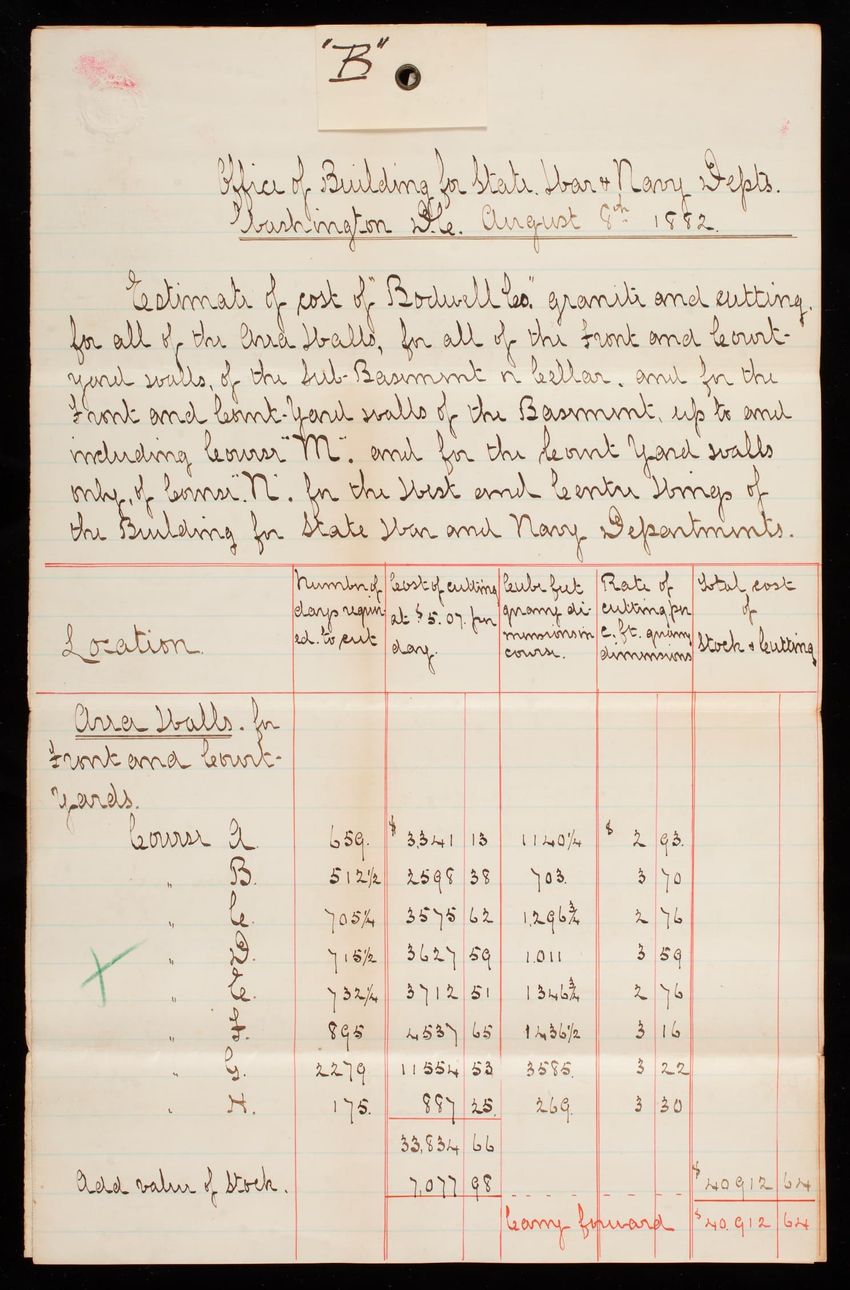 "B"
Office of Building for State, War & Navy Depts.
Washington D.C. August 8th 1882.
Estimate of cost of "Bodwell Co." granite and cutting,
for all of the Area Walls, for all of the Front and Court-
yard walls, of the Sub-Basement or Cellar, and for the
Front and Court-Yard walls of the Basement, up to and
including Course "M", and for the Court Yard walls
only, of Course "N", for the West and Centre Wings of
the Building for State War and Navy Departments.
Location. | Number of days required to cut | Cost of cutting at $5.07 per day. | Cubic feet quarry dimensions in course. | Rate of cutting per c. ft. quarry dimensions | Total cost of Stock & Cutting
Area Walls. for
Front and Court-
Yards.
Course A. 659. $3,341 13 1140¼ $2 93.
" B. 512½ 2598 38 703. 3 70
" C. 705¼ 3575 62 1,296¾ 2 76
" D. 715½ 3627 59 1,011 3 59
" E. 732¼ 3712 51 1346¾ 2 76
" F. 895 4537 65 1436½ 3 16
" G. 2279 11554 53 3585. 3 22
" H. 175. 887 25. 269. 3 30
33,834 66
Add value of Stock. 7,077 98 $40912 64
Carry forward $40,912 64